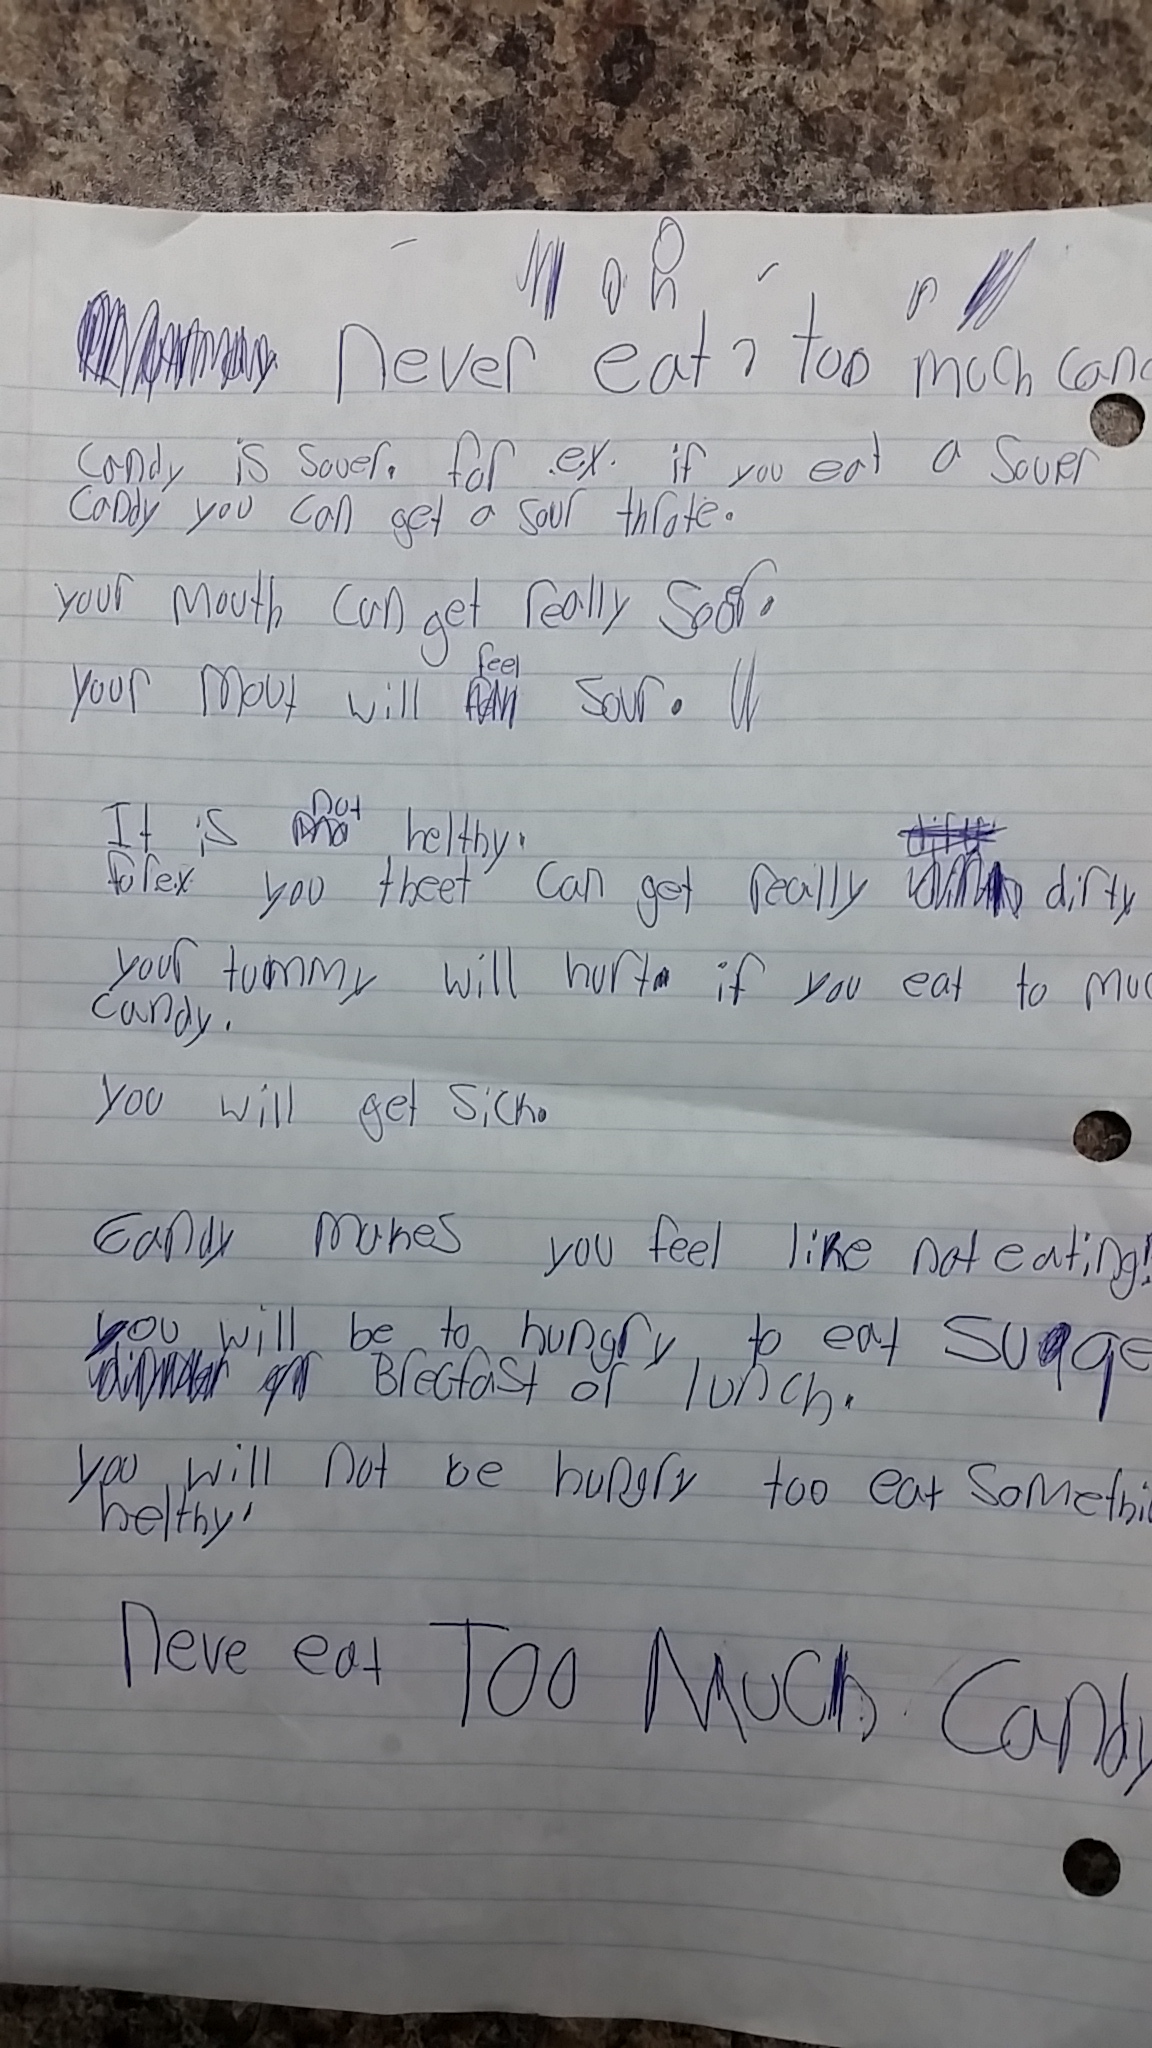 never eat too much canc
candy is souer. for .ex. if you eat a souer
candy you can get a sour throte.
your mouth can get really soor.
your mout will feel sour.
It is not helthy.
for ex. you theet can get really dirty
your tummy will hurt if you eat to muc
candy.
you will get sick.
Candy makes you feel like not eating!
you will be to hungry to eat sugge
Brecfast or lunch.
you will not be hungry too eat somethi
helthy!
neve eat Too Much Candy